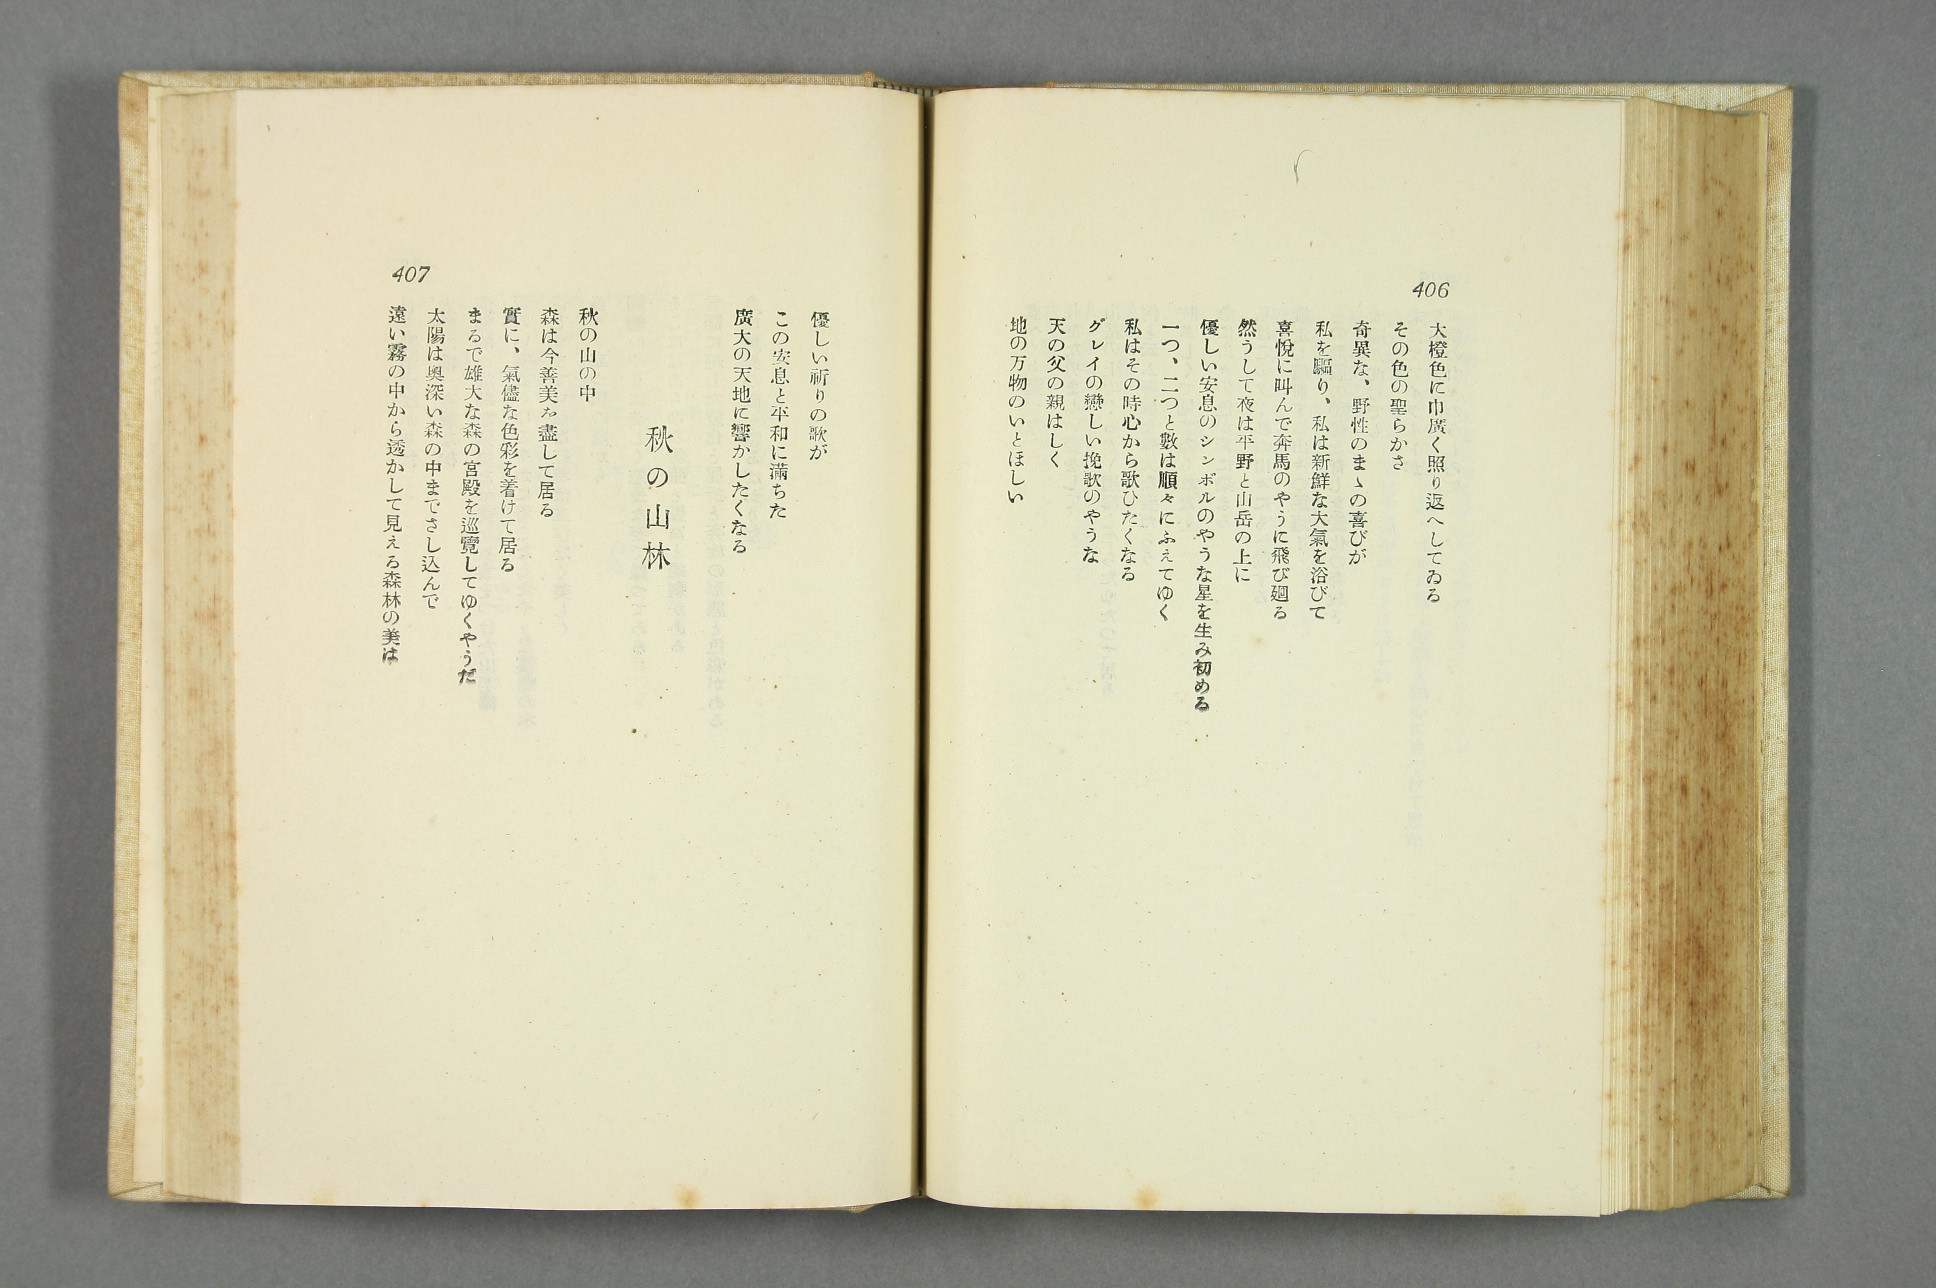 406
大橙色に巾廣く照り返へしてゐる
その色の聖らかさ
奇異な、野性のまゝの喜びが
私を驅り、私は新鮮な大氣を浴びて
喜悅に叫んで奔馬のやうに飛び廻る
然うして夜は平野と山岳の上に
優しい安息のシンボルのやうな星を生み初める
一つ、二つと數は順々にふえてゆく
私はその時心から歌ひたくなる
グレイの戀しい挽歌のやうな
天の父の親はしく
地の万物のいとほしい
優しい祈りの歌が
この安息と平和に滿ちた
廣大の天地に響かしたくなる
秋の山林
秋の山の中
森は今善美を盡して居る
實に、氣儘な色彩を着けて居る
まるで雄大な森の宮殿を巡覽してゆくやうだ
太陽は奥深い森の中までさし込んで
遠い霧の中から透かして見える森林の美は
407